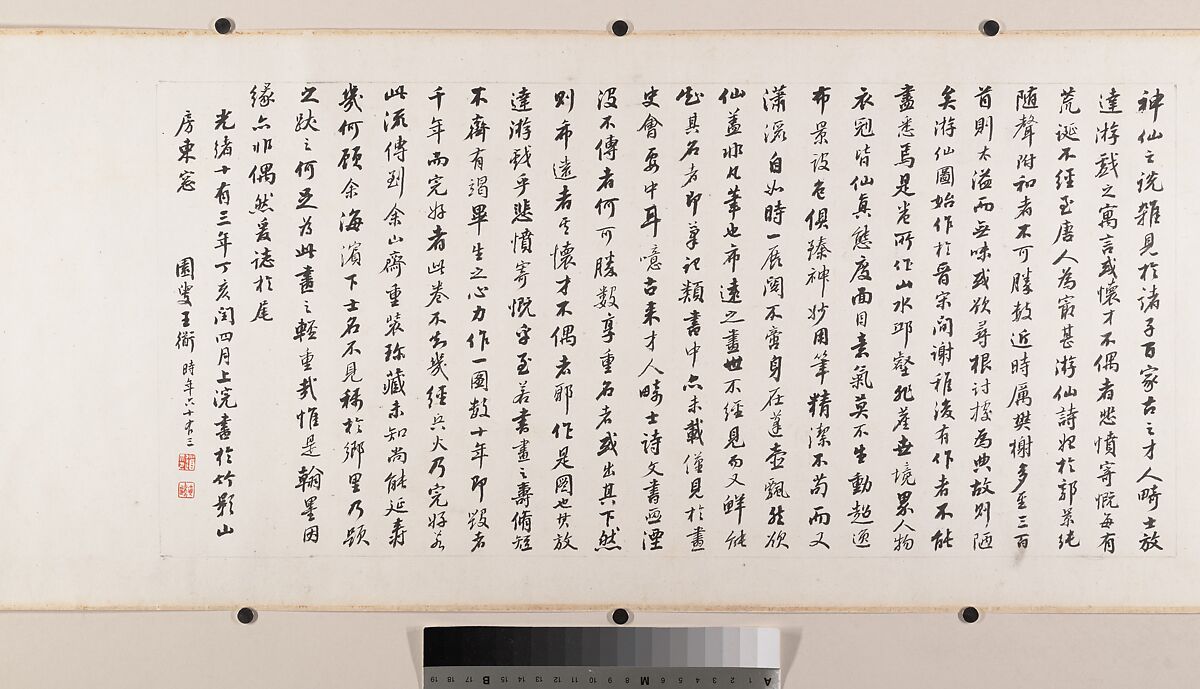 神仙之說雜見於諸子百家古之才人畸士放
達游戲之寓言或懷才不偶者悲憤寄慨每有
荒誕不經至唐人為寂甚游仙詩始於郭景純
隨聲附和者不可勝數近時厲樊榭多至三百
首則太溢而無味或欲尋根討據為典故則陋
矣游仙圖始作於晉宋間謝稚後有作者不能
盡悉焉是卷所作山水邱壑飛崖世境界人物
衣冠皆仙真態度面目意氣莫不生動超逸
布景設色俱臻神妙用筆精潔不苟而又
瀟灑自如時一展閱不啻身在蓬壺飄然欲
仙蓋非凡筆也布遠之畫世不經見而又鮮能
知其名者即筆記類書中亦未載僅見於畫
史會要中耳噫古來才人畸士詩文書畫湮
沒不傳者何可勝數享重名者或出其下然
則布遠者其懷才不偶者耶作是圖也其放
達游戲乎悲憤寄慨乎至若書畫之壽脩短
不齊有竭畢生之心力作一圖數十年即毀者
千年而完好者此卷不知幾經兵火乃完好若
此流傳到余山齋重裝珍藏未知尚能延壽
幾何顧余海濱下士名不見稱於鄉里乃題
之跋之何足為此畫之輕重哉惟是翰墨因
緣亦非偶然爰誌於尾
光緒十有三年丁亥閏四月上浣書於竹影山
房東窓
園叟王衛時年六十有三